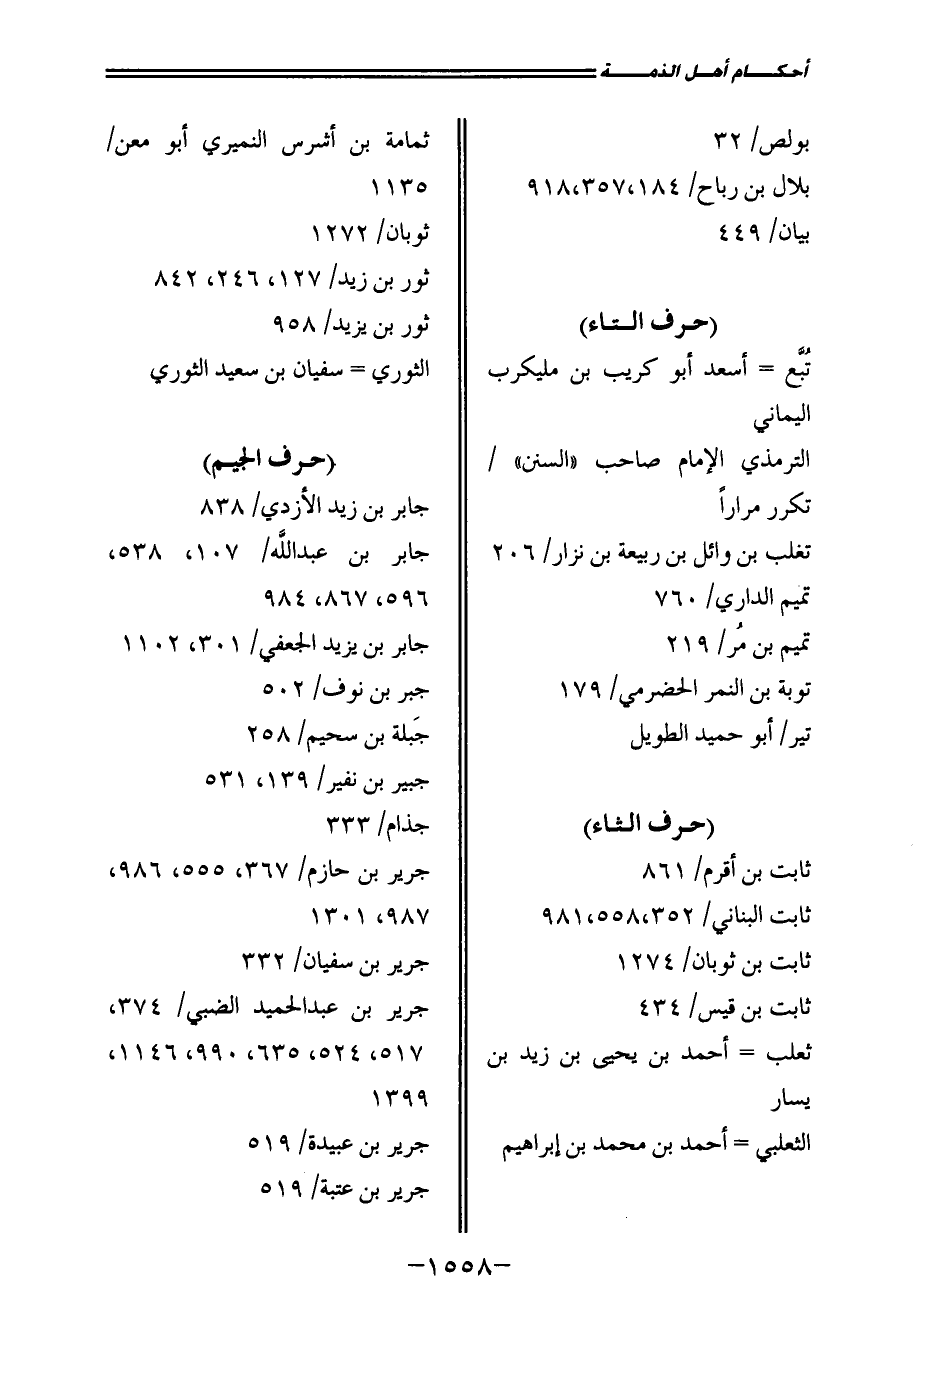 أحكام أهل الذمة
بولص/ ٣٢
بلال بن رباح/ ١٨٤،٣٥٧،٩١٨
بيان/ ٤٤٩
(حرف التاء)
تُبَّع = أسعد أبو كريب بن مليكرب
اليماني
الترمذي الإمام صاحب «السنن» /
تكرر مراراً
تغلب بن وائل بن ربيعة بن نزار/ ٢٠٦
تميم الداري/ ٧٦٠
تميم بن مُر/ ٢١٩
توبة بن النمر الحضرمي/ ١٧٩
تير/ أبو حميد الطويل
(حرف الثاء)
ثابت بن أقرم/ ٨٦١
ثابت البناني/ ٣٥٢،٥٥٨،٩٨١
ثابت بن ثوبان/ ١٢٧٤
ثابت بن قيس/ ٤٣٤
ثعلب = أحمد بن يحيى بن زيد بن
يسار
الثعلبي = أحمد بن محمد بن إبراهيم
ثمامة بن أشرس النميري أبو معن/
١١٣٥
ثوبان/ ١٢٧٢
ثور بن زيد/ ١٢٧، ٢٤٦، ٨٤٢
ثور بن يزيد/ ٩٥٨
الثوري = سفيان بن سعيد الثوري
(حرف الجيم)
جابر بن زيد الأزدي/ ٨٣٨
جابر بن عبدالله/ ١٠٧، ٥٣٨،
٥٩٦، ٨٦٧، ٩٨٤
جابر بن يزيد الجعفي/ ٣٠١، ١١٠٢
جبر بن نوف/ ٥٠٢
جَبلة بن سحيم/ ٢٥٨
جبير بن نفير/ ١٣٩، ٥٣١
جذام/ ٣٣٣
جرير بن حازم/ ٣٦٧، ٥٥٥، ٩٨٦،
٩٨٧، ١٣٠١
جرير بن سفيان/ ٣٣٢
جرير بن عبدالحميد الضبي/ ٣٧٤،
٥١٧، ٥٢٤، ٦٣٥، ٩٩٠، ١١٤٦،
١٣٩٩
جرير بن عبيدة/ ٥١٩
جرير بن عتبة/ ٥١٩
-١٥٥٨-